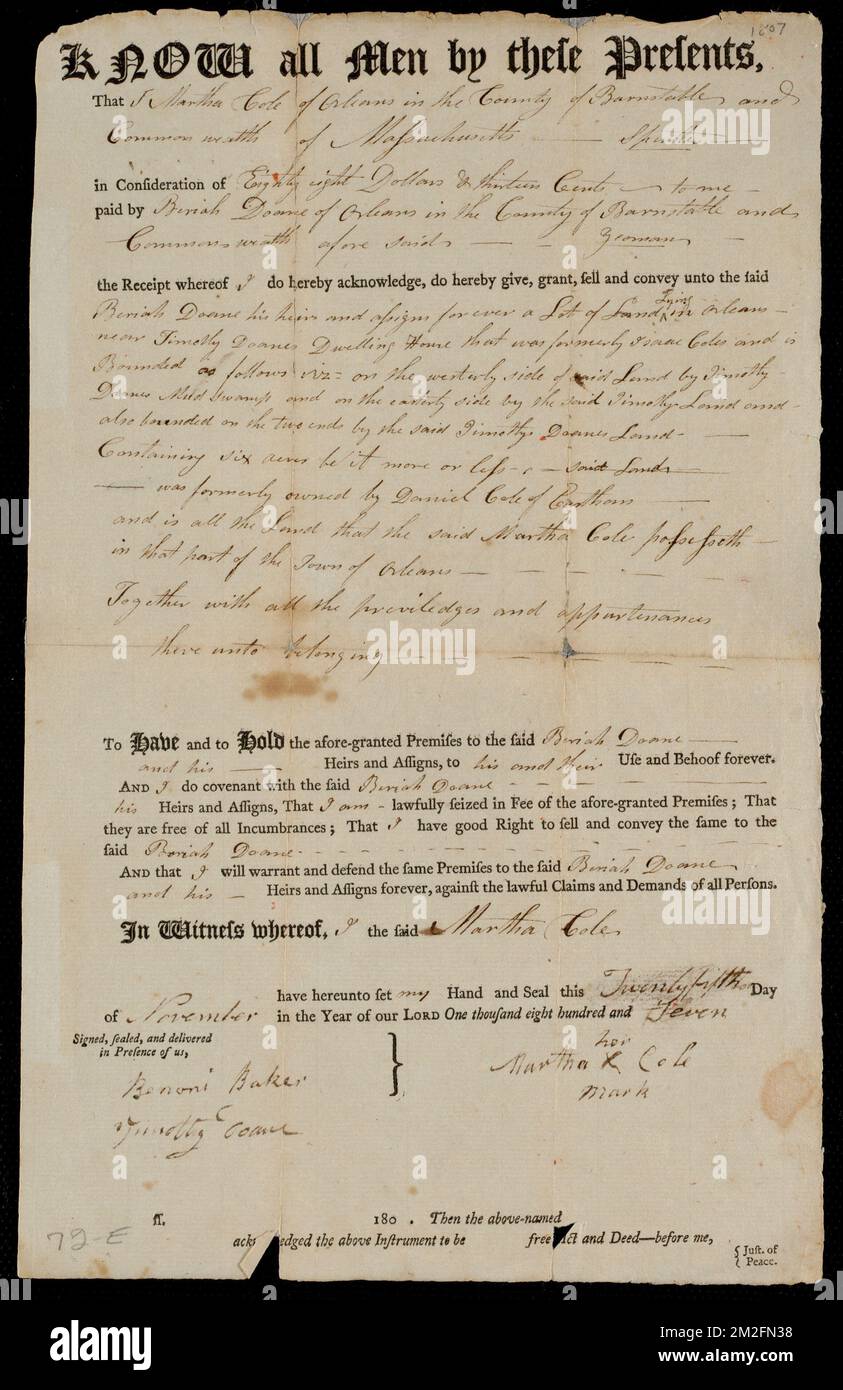 1807
KNOW all Men by theſe Preſents,
That I Martha Cole of Orleans in the County of Barnstable and
Common wealth of Massachusetts — Spinster —
in Conſideration of Eighty eight Dollars & thirteen Cents — to me —
paid by Beriah Doane of Orleans in the County of Barnstable and
Common wealth afore said — - Yeoman -
the Receipt whereof I do hereby acknowledge, do hereby give, grant, ſell and convey unto the ſaid
Beriah Doane his heirs and aſsigns for ever a Lot of Land lying in Orleans -
near Timothy Doanes Dwelling House that was formerly Isaac Coles and is
Bounded as follows viz= on the westerly side of said Land by Timothy -
Doanes Swamp and on the easterly side by the said Timothy Land and -
also bounded on the two ends by the said Timothy Doanes Land - —
Containing six acres be it more or leſs - , - said Land -
— was formerly owned by Daniel Cole of Eastham —
and is all the Land that the said Martha Cole poſseſseth —
in that part of the Town of Orleans — - - - -
Together with all the priviledges and appurtenances
there unto belonging — - - - -
To Have and to Hold the afore-granted Premiſes to the ſaid Beriah Doane —
and his — Heirs and Aſſigns, to his and their Uſe and Behoof forever.
AND I do covenant with the ſaid Beriah Doane - - - -
his Heirs and Aſſigns, That I am - lawfully ſeized in Fee of the afore-granted Premiſes ; That
they are free of all Incumbrances ; That I have good Right to ſell and convey the ſame to the
ſaid Beriah Doane - - - -
AND that I will warrant and defend the ſame Premiſes to the ſaid Beriah Doane
and his — Heirs and Aſſigns forever, againſt the lawful Claims and Demands of all Perſons.
In Witneſs whereof, I the ſaid Martha Cole
have hereunto ſet my Hand and Seal this Twenty fifth Day
of November in the Year of our LORD One thouſand eight hundred and Seven
Signed, ſealed, and delivered
in Preſence of us,
her
Martha X Cole
mark
Benoni Baker
Timothy Doane
ſſ. 180 . Then the above-named
ack edged the above Inſtrument to be free Act and Deed—before me,
Juſt. of
Peace.
72-E
alamy
Image ID: 2M2FN38
www.alamy.com